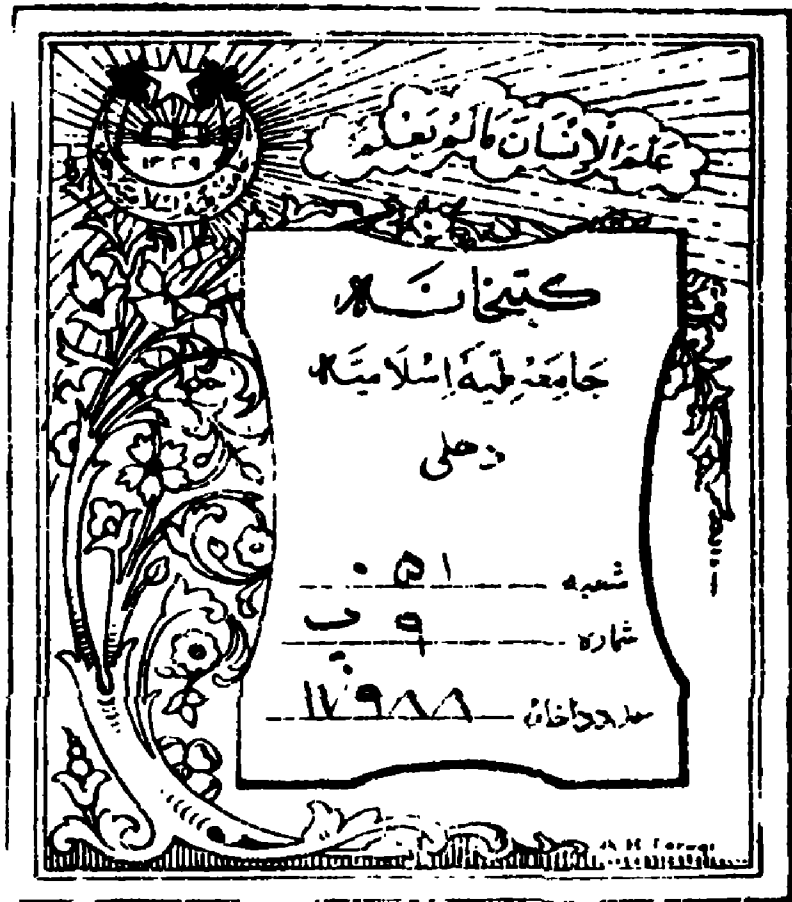 عَلَّمَ الْاِنْسَانَ مَالَمْ يَعْلَمْ
۱۳۳۹
کتبخانہ
جَامِعَہ مِلّیَہ اِسْلَامِیَہ
دھلی
شعبہ ۰۵۱
شمارہ ۹ پ
داخلہ ۱۷۹۸۸